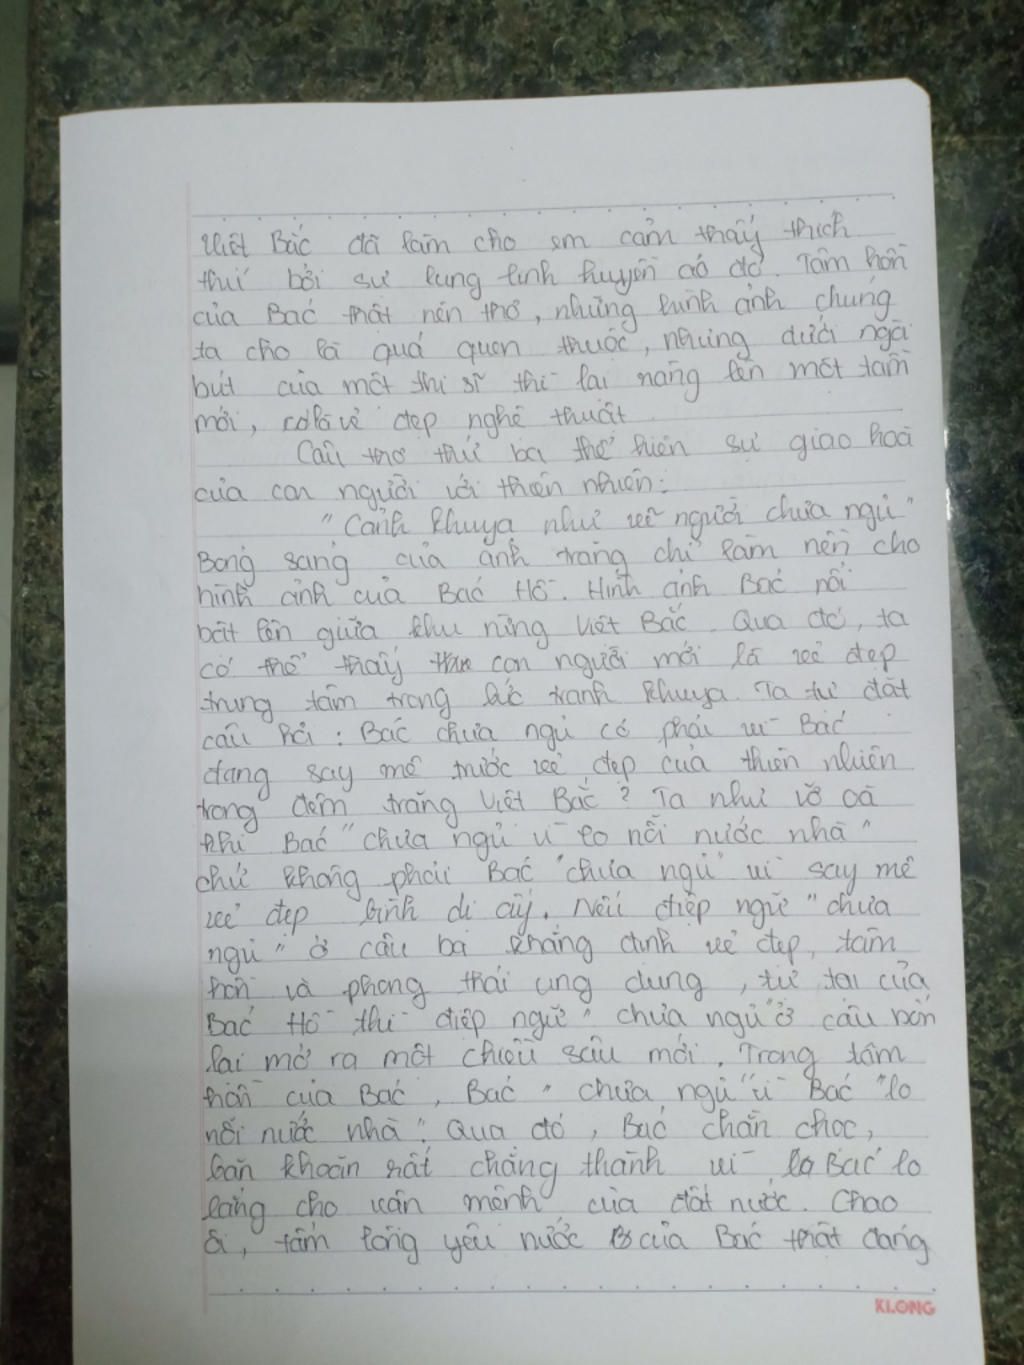 Việt Bắc đã làm cho em cảm thấy thích
thú bởi sự lung linh huyền ảo đó. Tâm hồn
của Bác thật nên thơ, những hình ảnh chúng
ta cho là quá quen thuộc, nhưng dưới ngòi
bút của một thi sĩ thì lại nâng lên một tầm
mới, có là vẻ đẹp nghệ thuật
Câu thơ thứ ba thể hiện sự giao hoà
của con người với thiên nhiên:
"Cảnh khuya như vẽ người chưa ngủ"
Bóng sáng của ánh trăng chỉ làm nền cho
hình ảnh của Bác Hồ. Hình ảnh Bác nổi
bật lên giữa khu rừng Việt Bắc. Qua đó, ta
có thể thấy con người mới là vẻ đẹp
trung tâm trong bức tranh khuya. Ta tự đặt
câu hỏi: Bác chưa ngủ có phải vì Bác
đang say mê trước vẻ đẹp của thiên nhiên
trong đêm trăng Việt Bắc? Ta như vỡ oà
khi Bác "chưa ngủ vì lo nỗi nước nhà"
chứ không phải Bác "chưa ngủ" vì say mê
vẻ đẹp bình dị ấy. Nếu điệp ngữ "chưa
ngủ" ở câu ba khẳng định vẻ đẹp, tâm
hồn và phong thái ung dung, tự tại của
Bác Hồ thì điệp ngữ "chưa ngủ" ở câu bốn
lại mở ra một chiều sâu mới. Trong tâm
hồn của Bác, Bác "chưa ngủ" vì Bác "lo
nỗi nước nhà". Qua đó, Bác chằn chọc,
băn khoăn rất chẳng thành vì là Bác lo
lắng cho vận mệnh của đất nước. Chao
ôi, tấm lòng yêu nước của Bác thật đáng
KLONG